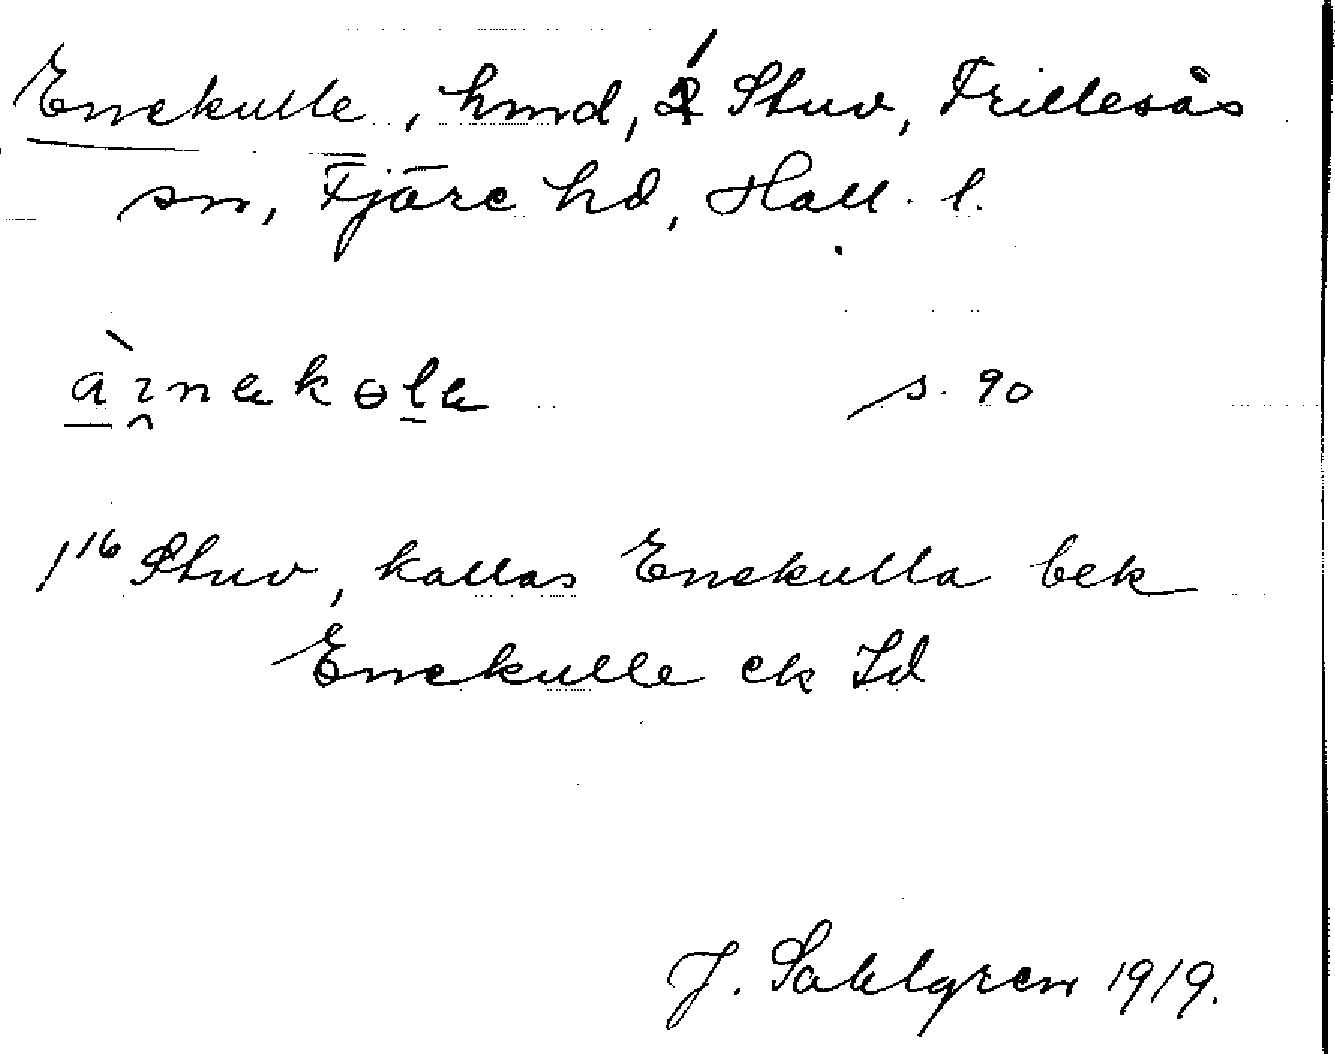 Enekulle, hmd, 1 Stuv, Frillesås
sn, Fjäre hd, Hall. l.
s. 90
1¹⁶ Stuv, kallas Enekulla bek
Enekulle ek Jd
J. Sahlgren 1919.